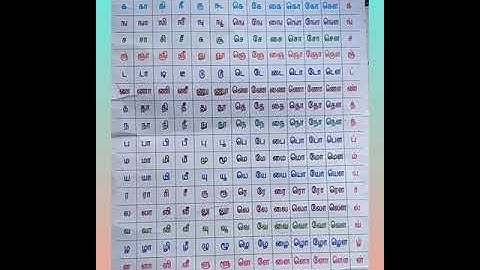 க கா கி கீ கு கூ கெ கே கை கொ கோ கௌ க்
ங ஙா ஙி ஙீ ஙு ஙூ ஙெ ஙே ஙை ஙொ ஙோ ஙௌ ங்
ச சா சி சீ சு சூ செ சே சை சொ சோ சௌ ச்
ஞ ஞா ஞி ஞீ ஞு ஞூ ஞெ ஞே ஞை ஞொ ஞோ ஞௌ ஞ்
ட டா டி டீ டு டூ டெ டே டை டொ டோ டௌ ட்
ண ணா ணி ணீ ணு ணூ ணெ ணே ணை ணொ ணோ ணௌ ண்
த தா தி தீ து தூ தெ தே தை தொ தோ தௌ த்
ந நா நி நீ நு நூ நெ நே நை நொ நோ நௌ ந்
ப பா பி பீ பு பூ பெ பே பை பொ போ பௌ ப்
ம மா மி மீ மு மூ மெ மே மை மொ மோ மௌ ம்
ய யா யி யீ யு யூ யெ யே யை யொ யோ யௌ ய்
ர ரா ரி ரீ ரு ரூ ரெ ரே ரை ரொ ரோ ரௌ ர்
ல லா லி லீ லு லூ லெ லே லை லொ லோ லௌ ல்
வ வா வி வீ வு வூ வெ வே வை வொ வோ வௌ வ்
ழ ழா ழி ழீ ழு ழூ ழெ ழே ழை ழொ ழோ ழௌ ழ்
ள ளா ளி ளீ ளு ளூ ளெ ளே ளை ளொ ளோ ளௌ ள்